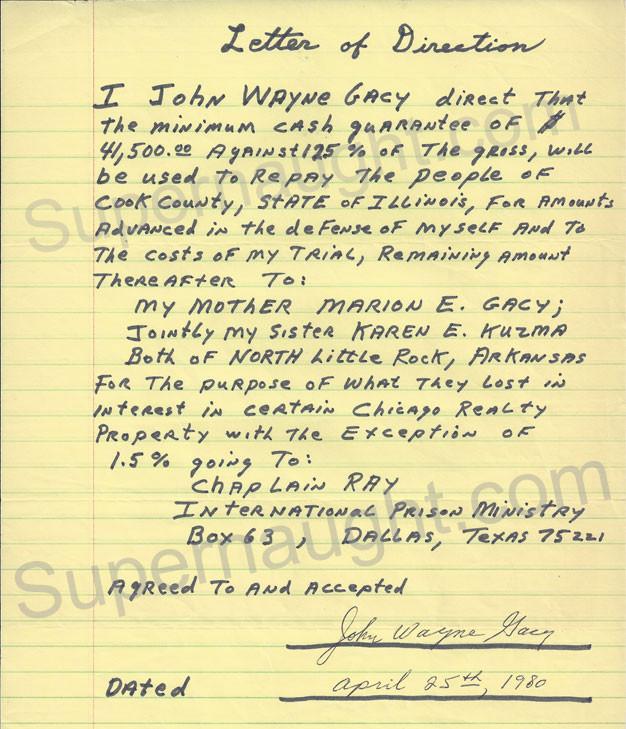 Letter of Direction
I John Wayne Gacy direct That
The minimum cash guarantee of $
41,500.00 Against 125% of The gross, will
be used To Repay The people of
Cook County, State of Illinois, For Amounts
Advanced in the defense of myself And To
The costs of my Trial, Remaining Amount
Thereafter To:
My Mother Marion E. Gacy;
Jointly my Sister Karen E. Kuzma
Both of North Little Rock, Arkansas
For The purpose of what They Lost in
interest in certain Chicago Realty
Property with The Exception of
1.5% going To:
Chaplain Ray
International Prison Ministry
Box 63, Dallas, Texas 75221
Agreed To And Accepted
John Wayne Gacy
Dated april 25th, 1980
Supernaught.com
Supernaught.com